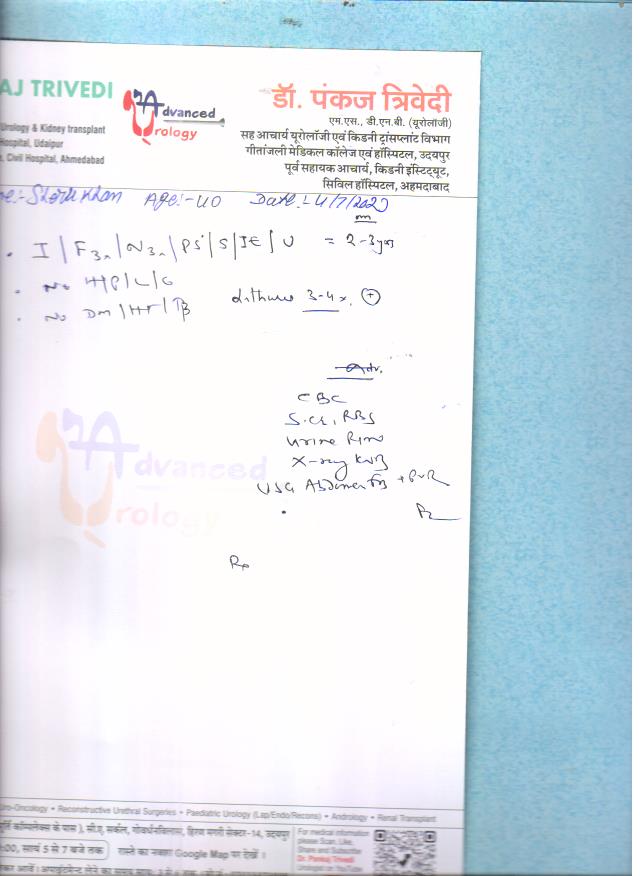 AJ TRIVEDI
Advanced
Urology
डॉ. पंकज त्रिवेदी
एम.एस., डी.एन.बी. (यूरोलॉजी)
Urology & Kidney transplant
सह आचार्य यूरोलॉजी एवं किडनी ट्रांसप्लांट विभाग
Hospital, Udaipur
गीतांजली मेडिकल कॉलेज एवं हॉस्पिटल, उदयपुर
Civil Hospital, Ahmedabad
पूर्व सहायक आचार्य, किडनी इंस्टिट्यूट,
सिविल हॉस्पिटल, अहमदाबाद
Khan Age:- 40 Date:- 4/7/202
I / F3n / N3n / PS / S / IE / U = 2-3 yrs
No H/P/L/G
3-4x. (+)
No DM / HT / TB
Adv.
CBC
S.Cr, RBS
Urine R/M
X-ray KUB
USG Abdomen FB + PVR
Advanced
Urology
Rp
Uro-Oncology • Reconstructive Urethral Surgeries • Paediatric Urology (Lap/Endo/Recons) • Andrology • Renal Transplant
कॉम्पलेक्स के पास), सी.ए. सर्कल, गोवर्धनविलास, हिरण मगरी सेक्टर-14, उदयपुर
:00, सायं 5 से 7 बजे तक रास्ते का नक्शा Google Map पर देखें।
For medical information
please Scan, Like,
Share and Subscribe
Dr. Pankaj Trivedi
Urologist on YouTube